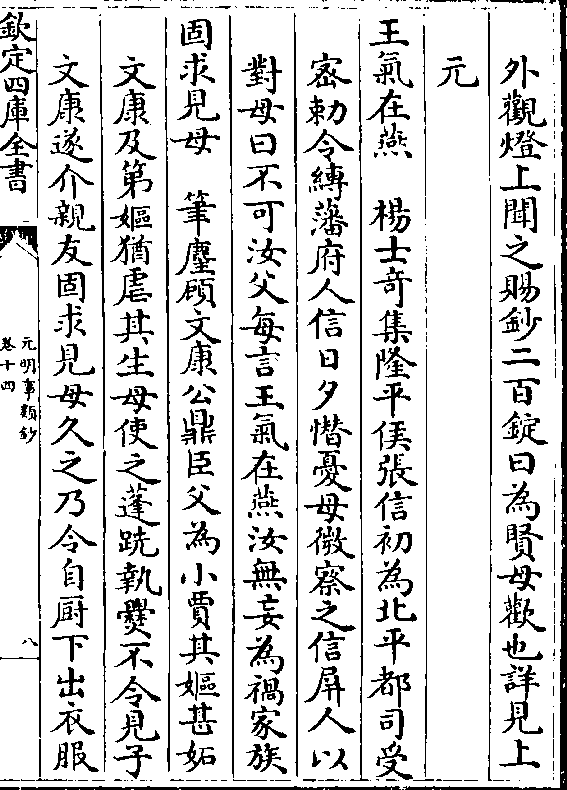 外觀燈上聞之賜鈔二百錠曰為賢母歡也詳見上
元
王氣在燕　楊士奇集隆平侯張信初為北平都司受
宻勅令縛藩府人信日夕憯憂母微察之信屏人以
對母曰不可汝父每言王氣在燕汝無妄為禍家族
固求見母　筆麈顧文康公鼎臣父為小賈其嫗甚妬
文康及第嫗猶虐其生母使之蓬跣執爨不令見子
文康遂介親友固求見母久之乃令自厨下出衣服
欽定四庫全書
元明事類鈔
卷十四
八